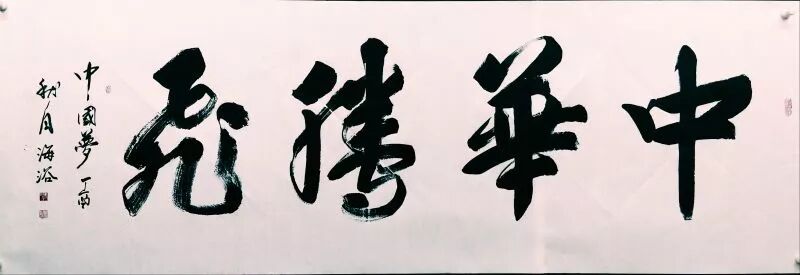 中華騰飛
中國夢 丁酉
秋月海浴